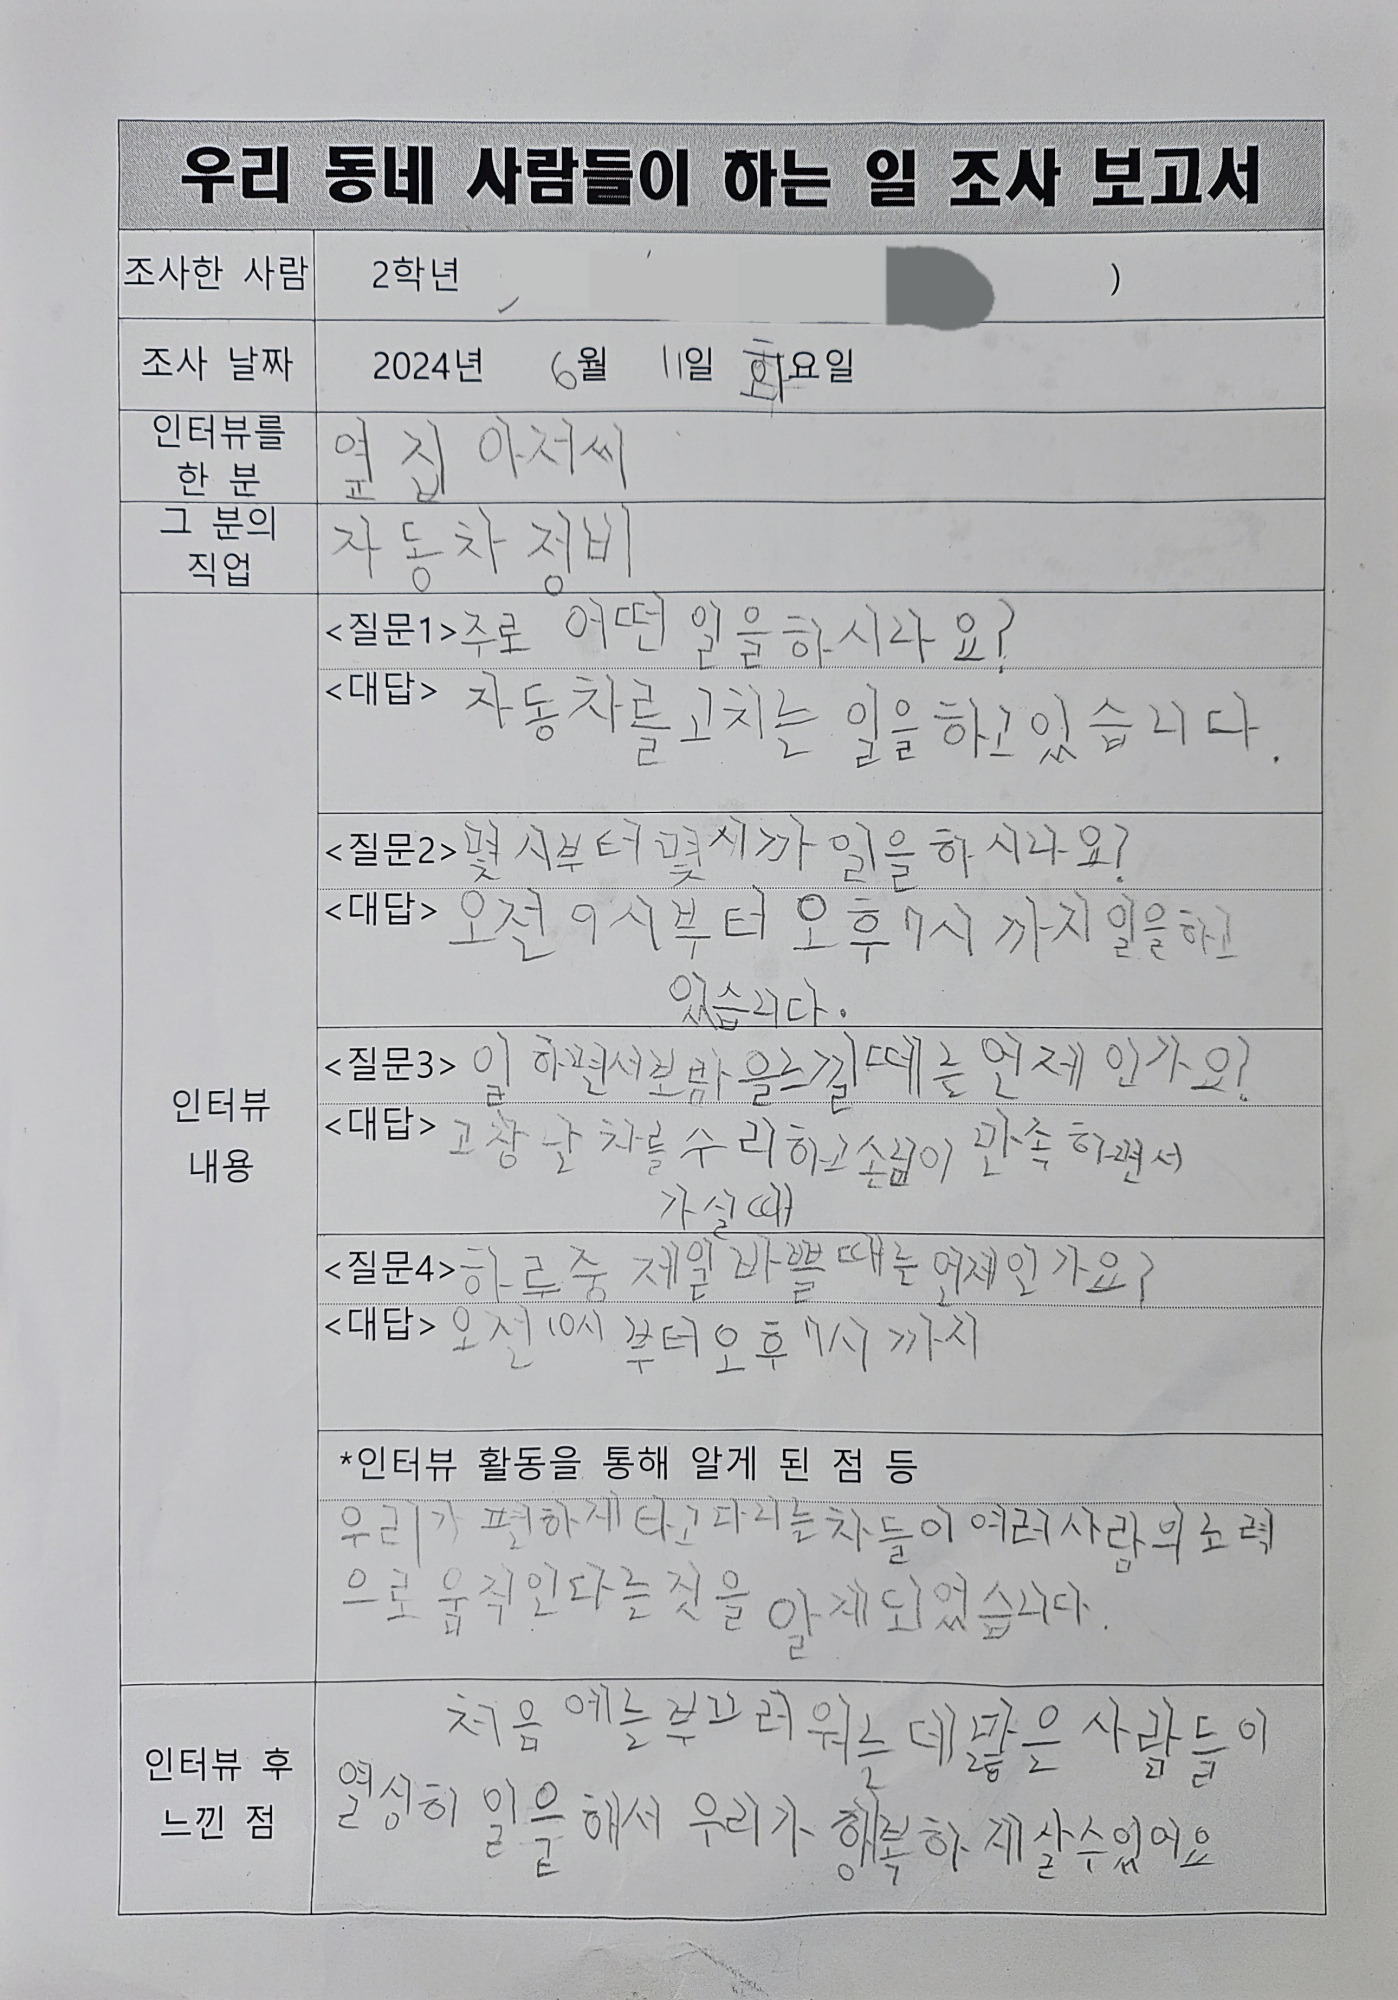 우리 동네 사람들이 하는 일 조사 보고서
조사한 사람 2학년 )
조사 날짜 2024년 6월 11일 화요일
인터뷰를 한 분 옆집 아저씨
그 분의 직업 자동차 정비
인터뷰 내용
<질문1> 주로 어떤 일을 하시나요?
<대답> 자동차를 고치는 일을 하고 있습니다.
<질문2> 몇시부터 몇시까 일을 하시나요?
<대답> 오전 9시부터 오후 7시 까지 일을 하고
있습니다.
<질문3> 일 하면서 보밤을 느낄때는 언제 인가요?
<대답> 고장 난 차를 수리하고 손님이 만족 하면서
가실때
<질문4> 하루중 제일 바쁠때는 언제인가요?
<대답> 오전 10시 부터 오후 7시 까지
*인터뷰 활동을 통해 알게 된 점 등
우리가 편하게 타고 다니는 차들이 여러 사람의 노력
으로 움직인다는 것을 알게되었습니다.
인터뷰 후 느낀 점
처음에는 부끄러워는데 많은 사람들이
열심히 일을 해서 우리가 행복하게 살수있어요